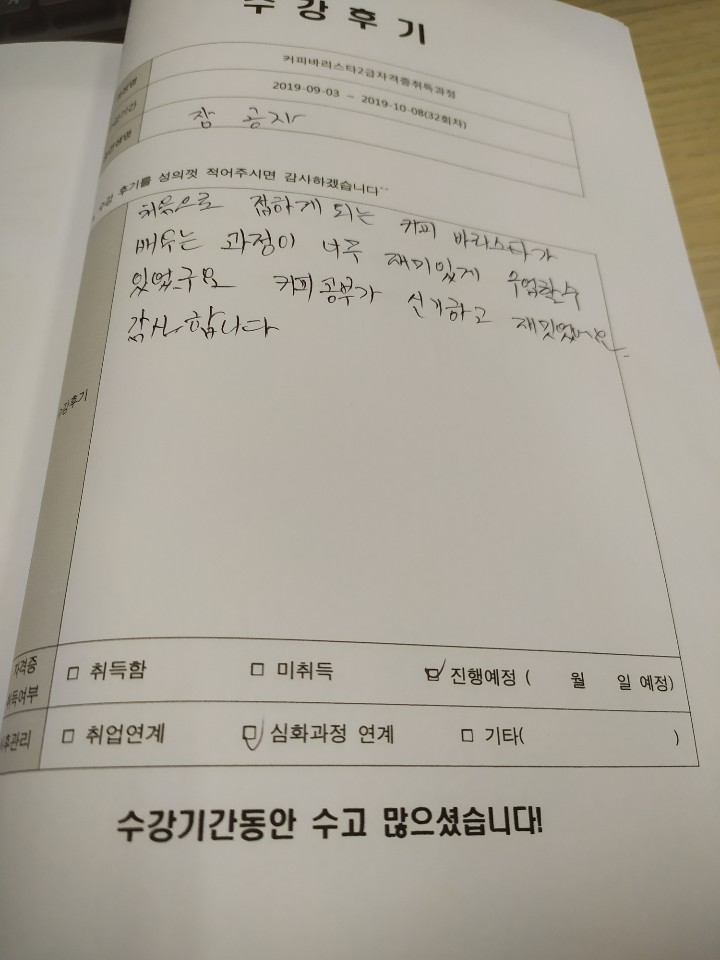 수 강 후 기
커피바리스타2급자격증취득과정
2019-09-03 ~ 2019-10-08(32회차)
참 공자
후기를 성의껏 적어주시면 감사하겠습니다^^
처음으로 접하게 되는 커피 바리스타가
배우는 과정이 너무 재미있게 수업할수
있었구요 커피공부가 신기하고 재밌었어요.
감사합니다
수강후기
자격증
취득여부
□ 취득함 □ 미취득 ☑ 진행예정 ( 월 일 예정)
사후관리
□ 취업연계 ☑ 심화과정 연계 □ 기타( )
수강기간동안 수고 많으셨습니다!